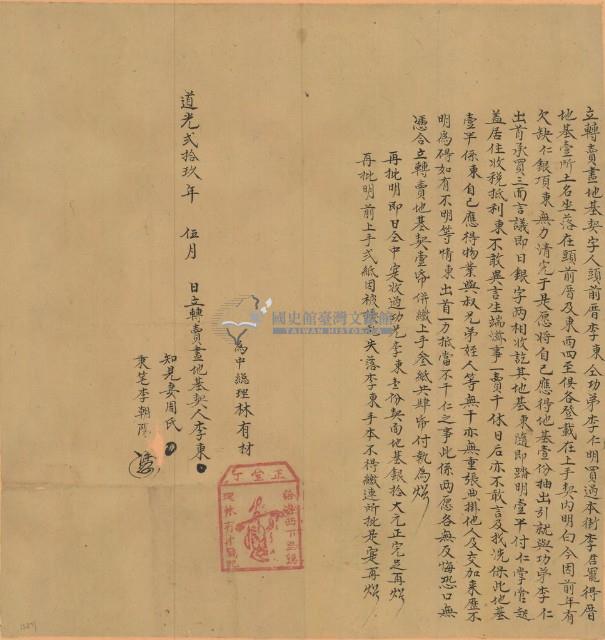 立轉賣盡地基契字人頭前厝李東仝功弟李仁明買過本街李君寵得厝
地基壹所土名坐落在頭前厝及東西四至俱各登載在上手契內明白今因前年有
欠缺仁銀項東無力清完于是愿將自己應得地基壹份抽出引就與功弟李仁
出首承買三面言議即日銀字两相收訖其地基東隨即踏明壹平付仁掌管起
盖居住收税抵利東不敢異言生端滋事一賣千休日后亦不敢言及找洗保此地基
壹平係東自己應得物業與叔兄弟姪人等無干亦無重張典掛他人及交加來歷不
明為碍如有不明等情東出首一力抵當不干仁之事此係两愿各無反悔恐口無
憑合立轉賣地基契壹帋併繳上手叁紙共肆帋付執為炤
再批明即日仝中寔收過功兄李東壹份契面地基銀拾大元正完足再炤
再批明前上手弍紙因被 失落李東手本不得繳連所批是寔再炤
道光弍拾玖年 伍月 日立轉賣盡地基契人李東
為中總理林有材
知見妻周氏
秉笔李朝
國史館臺灣文獻館
TAIWAN HISTORICA
正堂丁